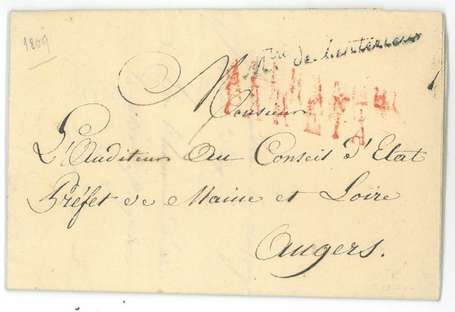 1809
Mtre de l'intérieur
Monsieur
L'Auditeur au Conseil d'Etat
Préfet de Maine et Loire
Angers.